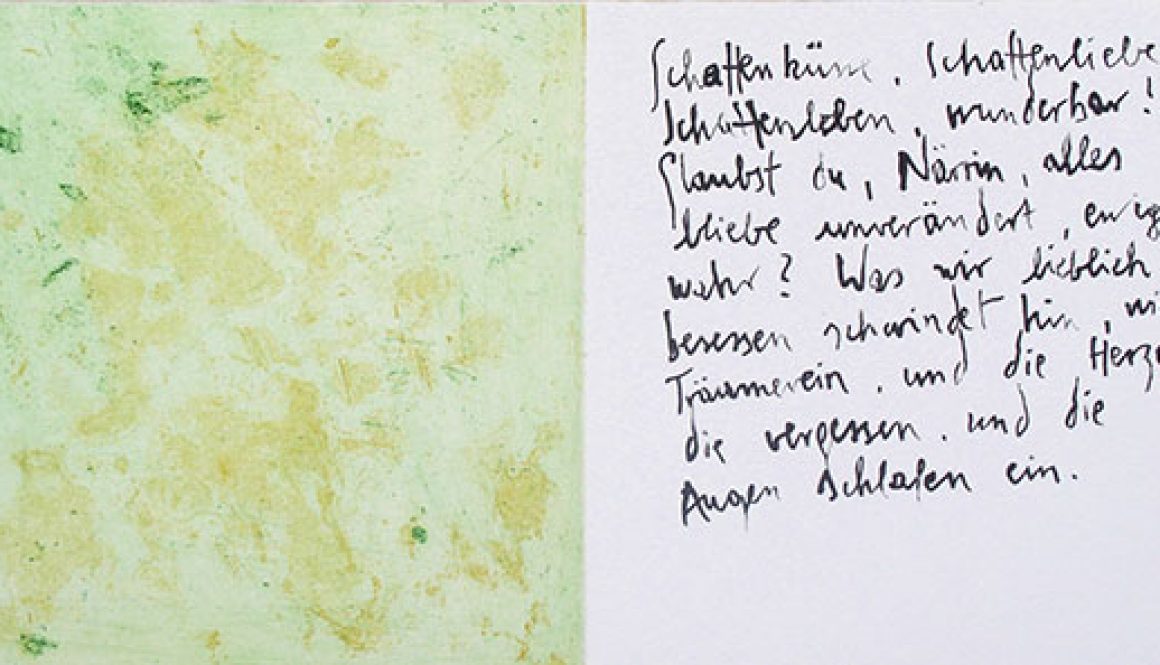 Schattenküsse, Schattenliebe
Schattenleben, wunderbar!
Glaubst du, Närrin, alles
bliebe unverändert, ewig
wahr? Was wir lieblich
besessen schwindet hin, wi
Träumerein. und die Herze
die vergessen. und die
Augen schlafen ein.